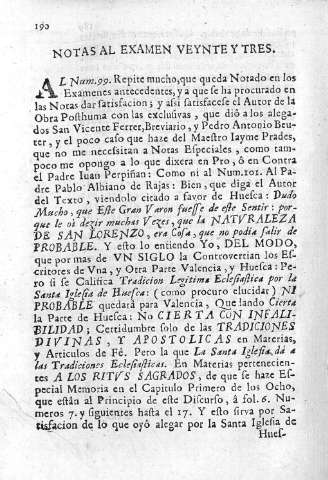 190
NOTAS AL EXAMEN VEYNTE Y TRES.
AL Num. 99. Repite mucho, que queda Notado en los
Examenes antecedentes, y a que se ha procurado en
las Notas dar satisfacion; y assi satisfacese el Autor de la
Obra Posthuma con las exclusivas, que diò a los alega-
dos San Vicente Ferrer, Breviario, y Pedro Antonio Beu-
ter, y el poco caso que haze del Maestro Iayme Prades,
que no me necessitan a Notas Especiales, como tam-
poco me opongo a lo que dixera en Pro, ò en Contra
el Padre Iuan Perpiñan: Como ni al Num. 101. Al Pa-
dre Pablo Albiano de Rajas: Bien, que diga el Autor
del Texto, viendolo citado a favor de Huesca: Dudo
Mucho, que Este Gran Varon fuesse de este Sentir: por-
que le oì dezir muchas Vezes, que la NATURALEZA
DE SAN LORENZO, era Cosa, que no podia salir de
PROBABLE. Y esto lo entiendo Yo, DEL MODO,
que por mas de VN SIGLO la Controvertian los Es-
critores de Vna, y Otra Parte Valencia, y Huesca: Pe-
ro si se Califica Tradicion Legitima Eclesiastica por la
Santa Iglesia de Huesca: (como procuro elucidar) NI
PROBABLE quedarà para Valencia, Quedando Cierta
la Parte de Huesca: No CIERTA CON INFALI-
BILIDAD; Certidumbre solo de las TRADICIONES
DIVINAS, Y APOSTOLICAS en Materias,
y Articulos de Fé. Pero la que La Santa Iglesia dà a
las Tradiciones Eclesiasticas. En Materias pertenecien-
tes A LOS RITVS SAGRADOS, de que se haze Es-
pecial Memoria en el Capitulo Primero de los Ocho,
que estàn al Principio de este Discurso, à fol. 6. Nu-
meros 7. y siguientes hasta el 17. Y esto sirva por Sa-
tisfacion de lo que oyò alegar por la Santa Iglesia de
Hues-